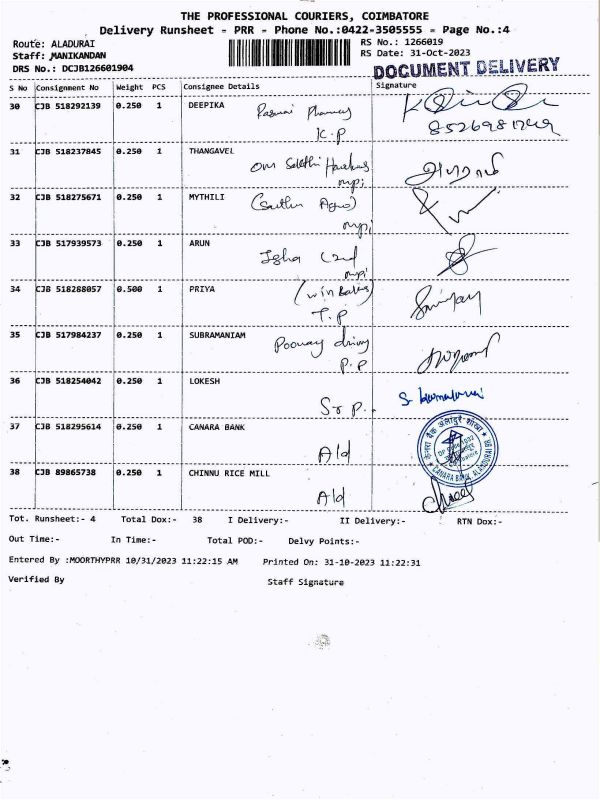 THE PROFESSIONAL COURIERS, COIMBATORE
Delivery Runsheet - PRR - Phone No.:0422-3505555 - Page No.:4
Route: ALADURAI
RS No.: 1266019
Staff: MANIKANDAN
RS Date: 31-Oct-2023
DRS No.: DCJB126601904
DOCUMENT DELIVERY
S No Consignment No Weight PCS Consignee Details Signature
30 CJB 518292139 0.250 1 DEEPIKA
Pharmacy
K.P
31 CJB 518237845 0.250 1 THANGAVEL
Om Sakthi
mpi
32 CJB 518275671 0.250 1 MYTHILI
mpi
33 CJB 517939573 0.250 1 ARUN
Isha
mpi
34 CJB 518288057 0.500 1 PRIYA
(win Bakes)
T.P
35 CJB 517984237 0.250 1 SUBRAMANIAM
P.P
36 CJB 518254042 0.250 1 LOKESH
Sr P.
37 CJB 518295614 0.250 1 CANARA BANK
Ald
38 CJB 89865738 0.250 1 CHINNU RICE MILL
Ald
Tot. Runsheet:- 4 Total Dox:- 38 I Delivery:- II Delivery:- RTN Dox:-
Out Time:- In Time:- Total POD:- Delvy Points:-
Entered By :MOORTHYPRR 10/31/2023 11:22:15 AM Printed On: 31-10-2023 11:22:31
Verified By Staff Signature